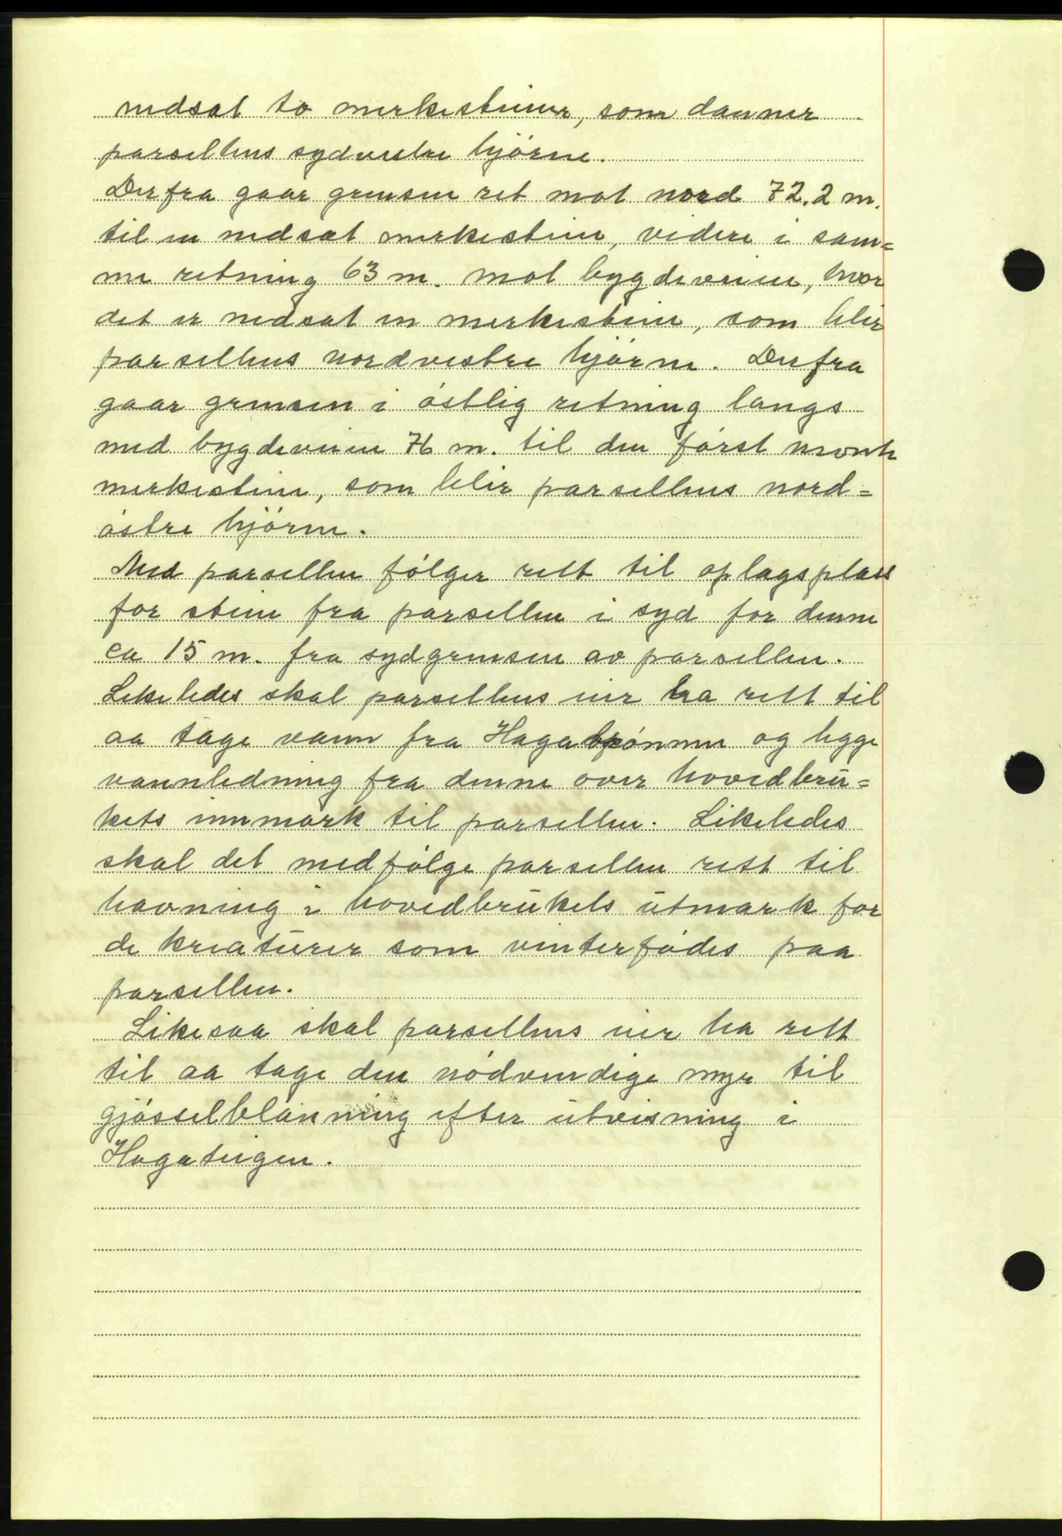 nedsat to merkesteiner, som danner
parsellens sydvestre hjörne.
Derfra gaar grensen ret mot nord 72.2 m.
til en nedsat merkestein, videre i sam=
me retning 63 m. mot bygdeveien, hvor
det er nedsat en merkestein, som blir
parsellens nordvestre hjörne. Derfra
gaar grensen i östlig retning langs
med bygdeveien 76 m. til den först nevnte
merkestein, som blir parsellens nord=
östre hjörne.
Med parsellen fölger rett til oplagsplass
for stein fra parsellen i syd for denne
ca 15 m. fra sydgrensen av parsellen.
Likeledes skal parsellens eier ha rett til
aa tage vann fra Hagabrönnen og legge
vannledning fra denne over hovedbru=
kets innmark til parsellen. Likeledes
skal det medfölge parsellen rett til
havning i hovedbrukets utmark for
de kreaturer som vinterfödes paa
parsellen.
Likesaa skal parsellens eier ha rett
til aa tage den nödvendige myr til
gjösselblanning efter utvisning i
Hagateigen.